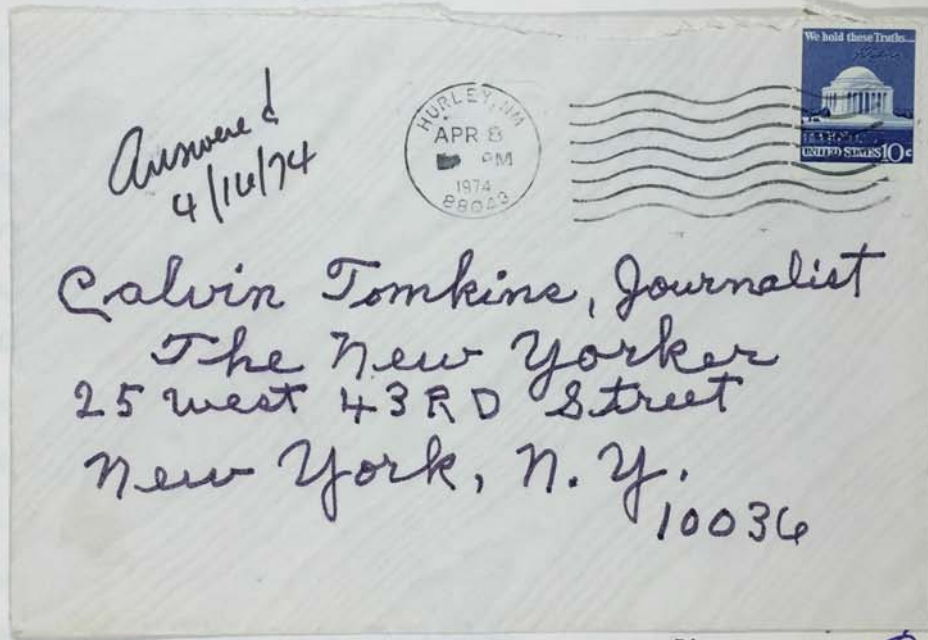 Answered
4/16/74
HURLEY, NM
APR 8
PM
1974
88043
We hold these Truths...
UNITED STATES 10c
Calvin Tomkins, Journalist
The New Yorker
25 West 43RD Street
New York, N. Y.
10036